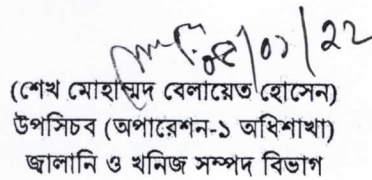 ০৫/০১/২২
(শেখ মোহাম্মদ বেলায়েত হোসেন)
উপসিচব (অপারেশন-১ অধিশাখা)
জ্বালানি ও খনিজ সম্পদ বিভাগ